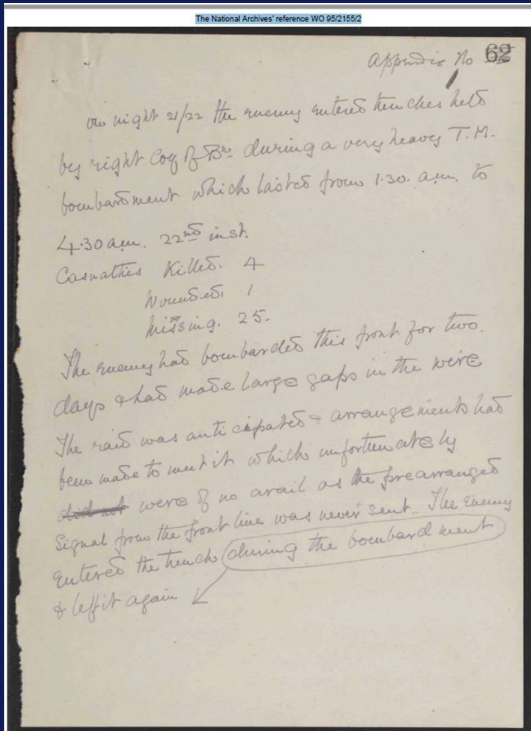 The National Archives' reference WO 95/2155/2
Appendix No 62
On night 21/22 the enemy entered trenches held
by right Coy of Bn. during a very heavy T.M.
bombardment which lasted from 1.30. a.m. to
4.30 a.m. 22nd inst.
Casualties Killed. 4
Wounded. 1
Missing. 25.
The enemy had bombarded this front for two
days & had made large gaps in the wire
The raid was anticipated & arrangements had
been made to meet it which unfortunately
did not were of no avail as the prearranged
Signal from the front line was never sent. The enemy
entered the trench during the bombardment
& left it again